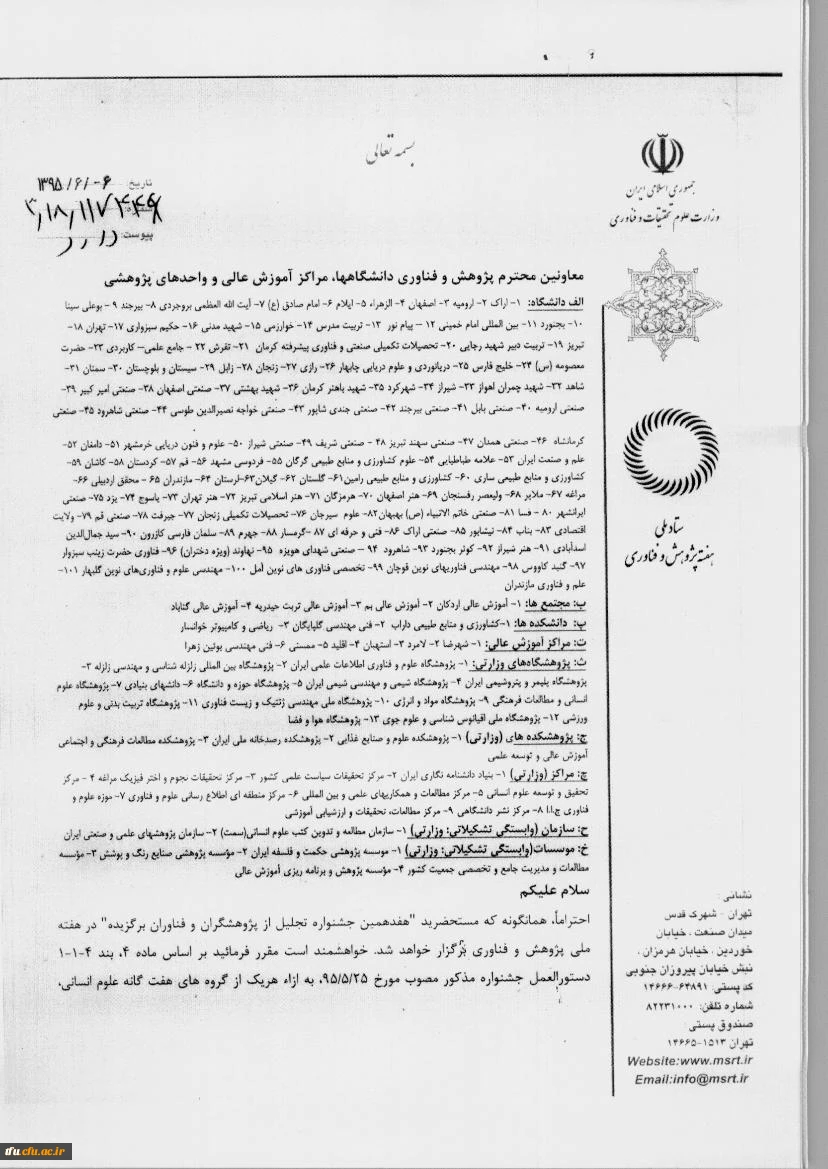 بسمه تعالی
جمهوری اسلامی ایران
وزارت علوم تحقیقات و فناوری
تاریخ: ۱۳۹۵/۶/۰۶
پیوست:
ستاد ملی
هفته پژوهش و فناوری
معاونین محترم پژوهش و فناوری دانشگاهها، مراکز آموزش عالی و واحدهای پژوهشی
الف دانشگاه: ۱- اراک ۲- ارومیه ۳- اصفهان ۴- الزهراء ۵- ایلام ۶- امام صادق (ع) ۷- آیت الله العظمی بروجردی ۸- بیرجند ۹- بوعلی سینا
۱۰- بجنورد ۱۱- بین المللی امام خمینی ۱۲ – پیام نور ۱۳- تربیت مدرس ۱۴- خوارزمی ۱۵- شهید مدنی ۱۶- حکیم سبزواری ۱۷- تهران ۱۸-
تبریز ۱۹- تربیت دبیر شهید رجایی ۲۰- تحصیلات تکمیلی صنعتی و فناوری پیشرفته کرمان ۲۱- تفرش ۲۲ – جامع علمی- کاربردی ۲۳- حضرت
معصومه (س) ۲۴- خلیج فارس ۲۵- دریانوردی و علوم دریایی چابهار ۲۶- رازی ۲۷- زنجان ۲۸- زابل ۲۹- سیستان و بلوچستان ۳۰- سمنان ۳۱-
شاهد ۳۲- شهید چمران اهواز ۳۳- شیراز ۳۴- شهرکرد ۳۵- شهید باهنر کرمان ۳۶- شهید بهشتی ۳۷- صنعتی اصفهان ۳۸- صنعتی امیر کبیر ۳۹-
صنعتی ارومیه ۴۰- صنعتی بابل ۴۱- صنعتی بیرجند ۴۲- صنعتی جندی شاپور ۴۳- صنعتی خواجه نصیرالدین طوسی ۴۴- صنعتی شاهرود ۴۵- صنعتی
کرمانشاه ۴۶- صنعتی همدان ۴۷- صنعتی سهند تبریز ۴۸ - صنعتی شریف ۴۹- صنعتی شیراز ۵۰- علوم و فنون دریایی خرمشهر ۵۱- دامغان ۵۲-
علم و صنعت ایران ۵۳- علامه طباطبایی ۵۴- علوم کشاورزی و منابع طبیعی گرگان ۵۵- فردوسی مشهد ۵۶- قم ۵۷- کردستان ۵۸- کاشان ۵۹-
کشاورزی و منابع طبیعی ساری ۶۰- کشاورزی و منابع طبیعی رامین ۶۱- گلستان ۶۲- گیلان ۶۳- لرستان ۶۴- مازندران ۶۵ - محقق اردبیلی ۶۶-
مراغه ۶۷- ملایر ۶۸- ولیعصر رفسنجان ۶۹- هنر اصفهان ۷۰- هرمزگان ۷۱- هنر اسلامی تبریز ۷۲- هنر تهران ۷۳- یاسوج ۷۴- یزد ۷۵- صنعتی
ایرانشهر ۸۰ - فسا ۸۱- صنعتی خاتم الانبیاء (ص) بهبهان ۸۲- علوم سیرجان ۷۶- تحصیلات تکمیلی زنجان ۷۷- جیرفت ۷۸- صنعتی قم ۷۹- ولایت
اقتصادی ۸۳- بناب ۸۴- نیشابور ۸۵- صنعتی اراک ۸۶- فنی و حرفه ای ۸۷- گرمسار ۸۸- جهرم ۸۹- سلمان فارسی کازرون ۹۰- سید جمال‌الدین
اسدآبادی ۹۱- هنر شیراز ۹۲- کوثر بجنورد ۹۳- شاهرود ۹۴ - صنعتی شهدای هویزه ۹۵- نهاوند (ویژه دختران) ۹۶- فناوری حضرت زینب سبزوار
۹۷- گنبد کاووس ۹۸- مهندسی فناوریهای نوین قوچان ۹۹- تخصصی فناوری های نوین آمل ۱۰۰- مهندسی علوم و فناوری‌های نوین گلبهار ۱۰۱-
علم و فناوری مازندران
ب: مجتمع ها: ۱- آموزش عالی اردکان ۲- آموزش عالی بم ۳- آموزش عالی تربت حیدریه ۴- آموزش عالی گناباد
پ: دانشکده ها: ۱- کشاورزی و منابع طبیعی داراب ۲- فنی مهندسی گلپایگان ۳- ریاضی و کامپیوتر خوانسار
ت: مراکز آموزش عالی: ۱- شهرضا ۲- لامرد ۳- استهبان ۴- اقلید ۵- ممسنی ۶- فنی مهندسی بوئین زهرا
ث: پژوهشگاه‌های وزارتی: ۱- پژوهشگاه علوم و فناوری اطلاعات علمی ایران ۲- پژوهشگاه بین المللی زلزله شناسی و مهندسی زلزله ۳-
پژوهشگاه پلیمر و پتروشیمی ایران ۴- پژوهشگاه شیمی و مهندسی شیمی ایران ۵- پژوهشگاه حوزه و دانشگاه ۶- دانشهای بنیادی ۷- پژوهشگاه علوم
انسانی و مطالعات فرهنگی ۹- پژوهشگاه مواد و انرژی ۱۰- پژوهشگاه ملی مهندسی ژنتیک و زیست فناوری ۱۱- پژوهشگاه تربیت بدنی و علوم
ورزشی ۱۲- پژوهشگاه ملی اقیانوس شناسی و علوم جوی ۱۳- پژوهشگاه هوا و فضا
ج: پژوهشکده های (وزارتی) ۱- پژوهشکده علوم و صنایع غذایی ۲- پژوهشکده رصدخانه ملی ایران ۳- پژوهشکده مطالعات فرهنگی و اجتماعی
آموزش عالی و توسعه علمی
چ: مراکز (وزارتی) ۱- بنیاد دانشنامه نگاری ایران ۲- مرکز تحقیقات سیاست علمی کشور ۳- مرکز تحقیقات نجوم و اختر فیزیک مراغه ۴ - مرکز
تحقیق و توسعه علوم انسانی ۵- مرکز مطالعات و همکاریهای علمی و بین المللی ۶- مرکز منطقه ای اطلاع رسانی علوم و فناوری ۷- موزه علوم و
فناوری ج.ا.ا ۸- مرکز نشر دانشگاهی ۹- مرکز مطالعات، تحقیقات و ارزشیابی آموزشی
ح: سازمان (وابستگی تشکیلاتی: وزارتی) ۱- سازمان مطالعه و تدوین کتب علوم انسانی(سمت) ۲- سازمان پژوهشهای علمی و صنعتی ایران
خ: موسسات(وابستگی تشکیلاتی: وزارتی) ۱- موسسه پژوهشی حکمت و فلسفه ایران ۲- مؤسسه پژوهشی صنایع رنگ و پوشش ۳- مؤسسه
مطالعات و مدیریت جامع و تخصصی جمعیت کشور ۴- مؤسسه پژوهش و برنامه ریزی آموزش عالی
سلام علیکم
احتراماً، همانگونه که مستحضرید "هفدهمین جشنواره تجلیل از پژوهشگران و فناوران برگزیده" در هفته
ملی پژوهش و فناوری برگزار خواهد شد. خواهشمند است مقرر فرمائید بر اساس ماده ۴، بند ۴-۱-۱
دستورالعمل جشنواره مذکور مصوب مورخ ۹۵/۵/۲۵، به ازاء هریک از گروه های هفت گانه علوم انسانی،
نشانی :
تهران - شهرک قدس
میدان صنعت ، خیابان
خوردین ، خیابان هرمزان ،
نبش خیابان پیروزان جنوبی
کد پستی: ۶۴۸۹۱-۱۴۶۶۶
شماره تلفن: ۸۲۲۳۱۰۰۰
صندوق پستی :
تهران ۱۵۱۳-۱۴۶۶۵
Website:www.msrt.ir
Email:info@msrt.ir
tfu.cfu.ac.ir